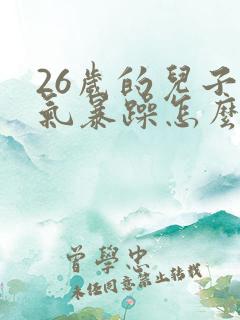 26歲的兒子
氣暴躁怎麼
曾學忠
未經同意禁止轉載